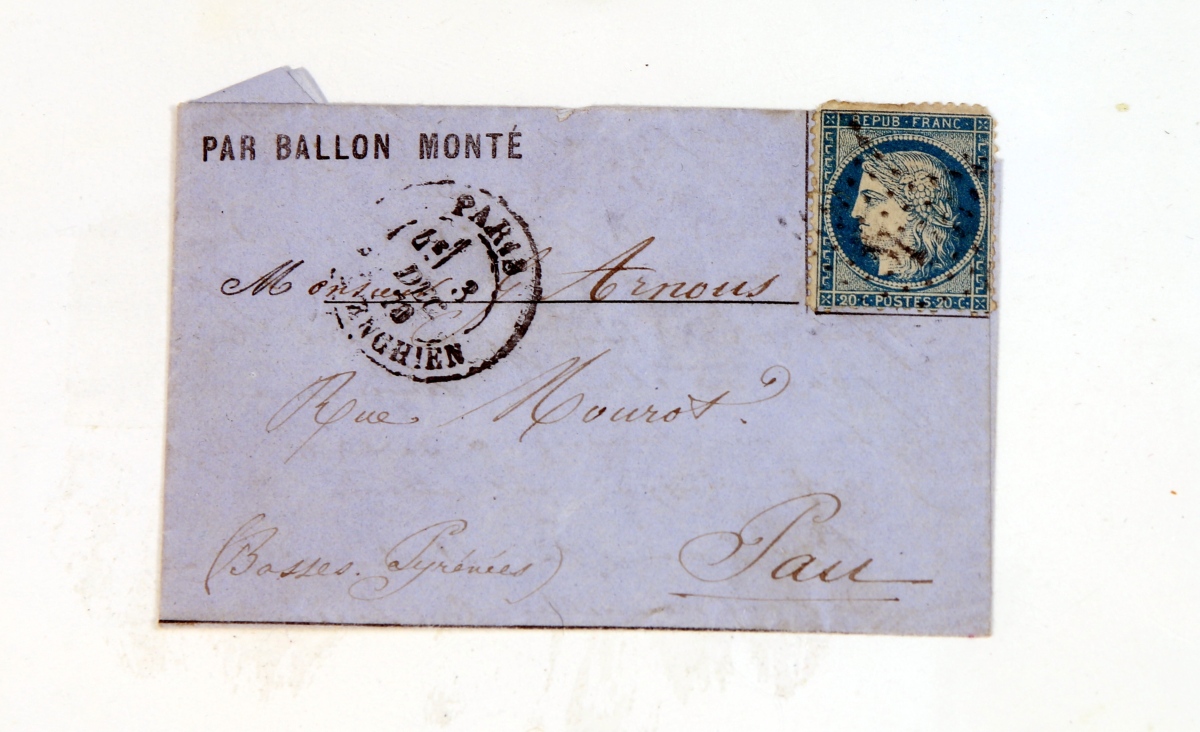 PAR BALLON MONTÉ
REPUB·FRANC
20·C·POSTES·20·C·
PARIS
3
DEC
70
ENGHIEN
Monsieur Arnous
Rue Mourot
Pau
(Basses-Pyrénées)